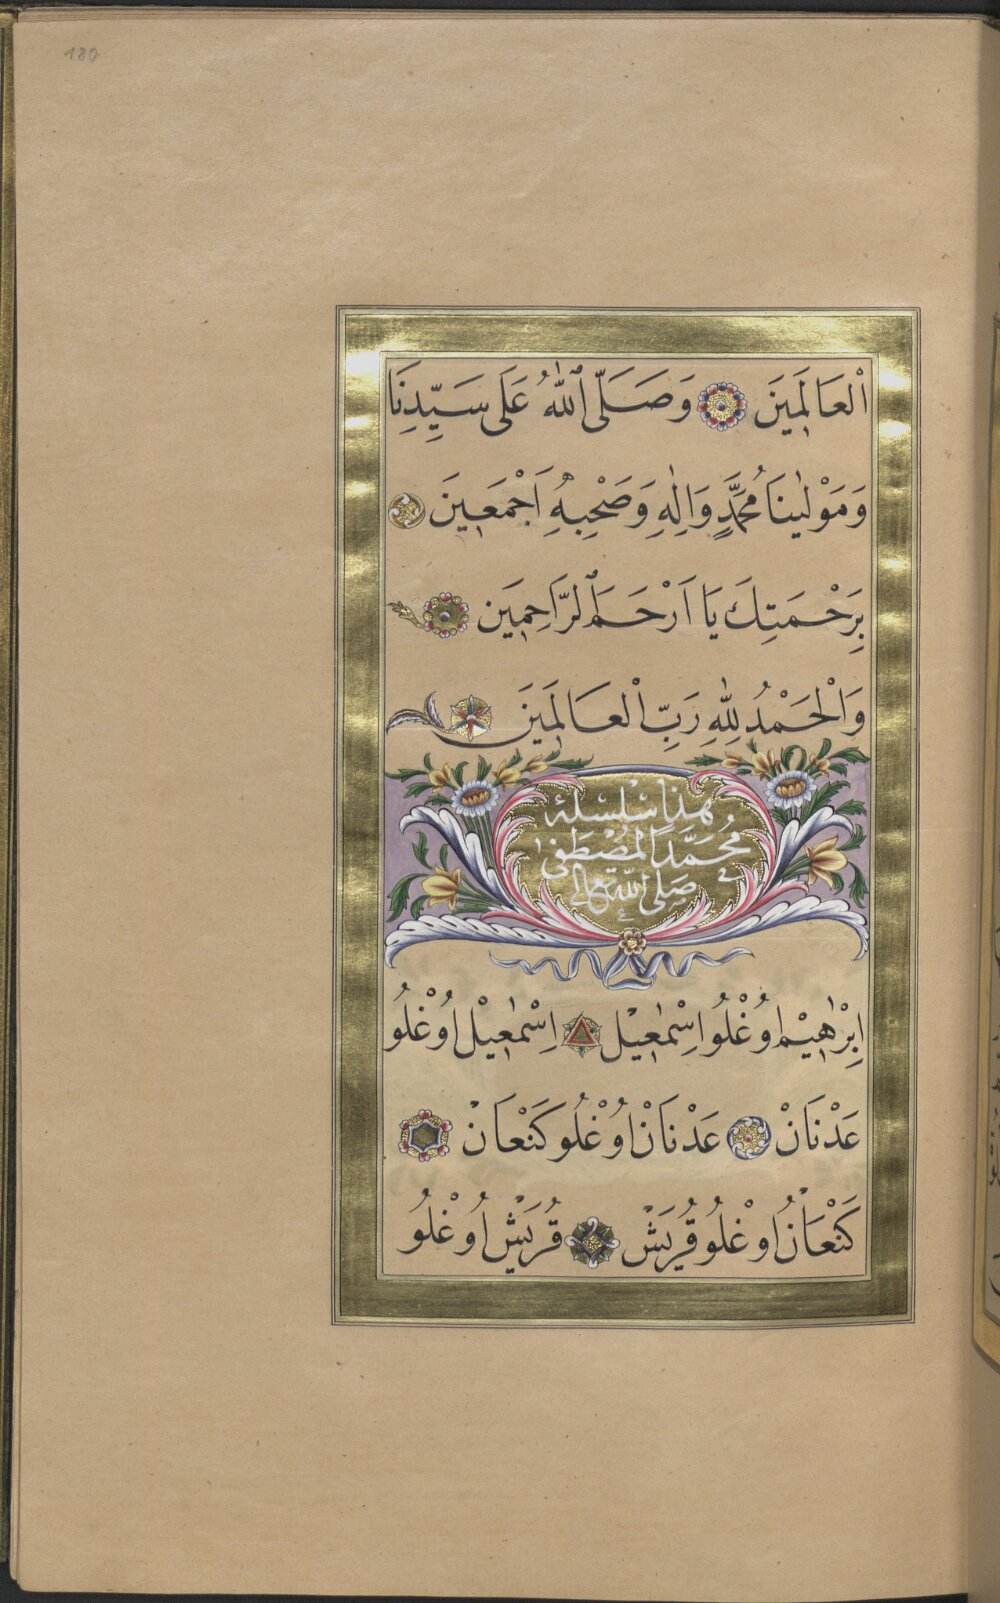 180
اْلعَالَمٖينَ وَصَلَّى ٱللّٰهُ عَلٰى سَيِّدِنَا
وَمَوْلٰينَا مُحَمَّدٍ وَاٰلِهٖ وَصَحْبِهٖ اَجْمَعٖينَ
بِرَحْمَتِكَ يَا اَرْحَمَ ٱلرَّاحِمٖينَ
وَاْلحَمْدُ لِلّٰهِ رَبِّ اْلعَالَمٖينَ
هذا سْلسلهٔ
مُحمَّد المُصْطَفٰى
صَلى الله تعالى
اِبْرٰهٖيم اوُغْلُو اِسْمٰعٖيل اِسْمٰعٖيل اوُغْلُو
عَدْنَانْ عَدْنَانْ اوُغْلُو كَنْعَانْ
كَنْعَانْ اوُغْلُو قُرَيشْ قُرَيشْ اوُغْلُو